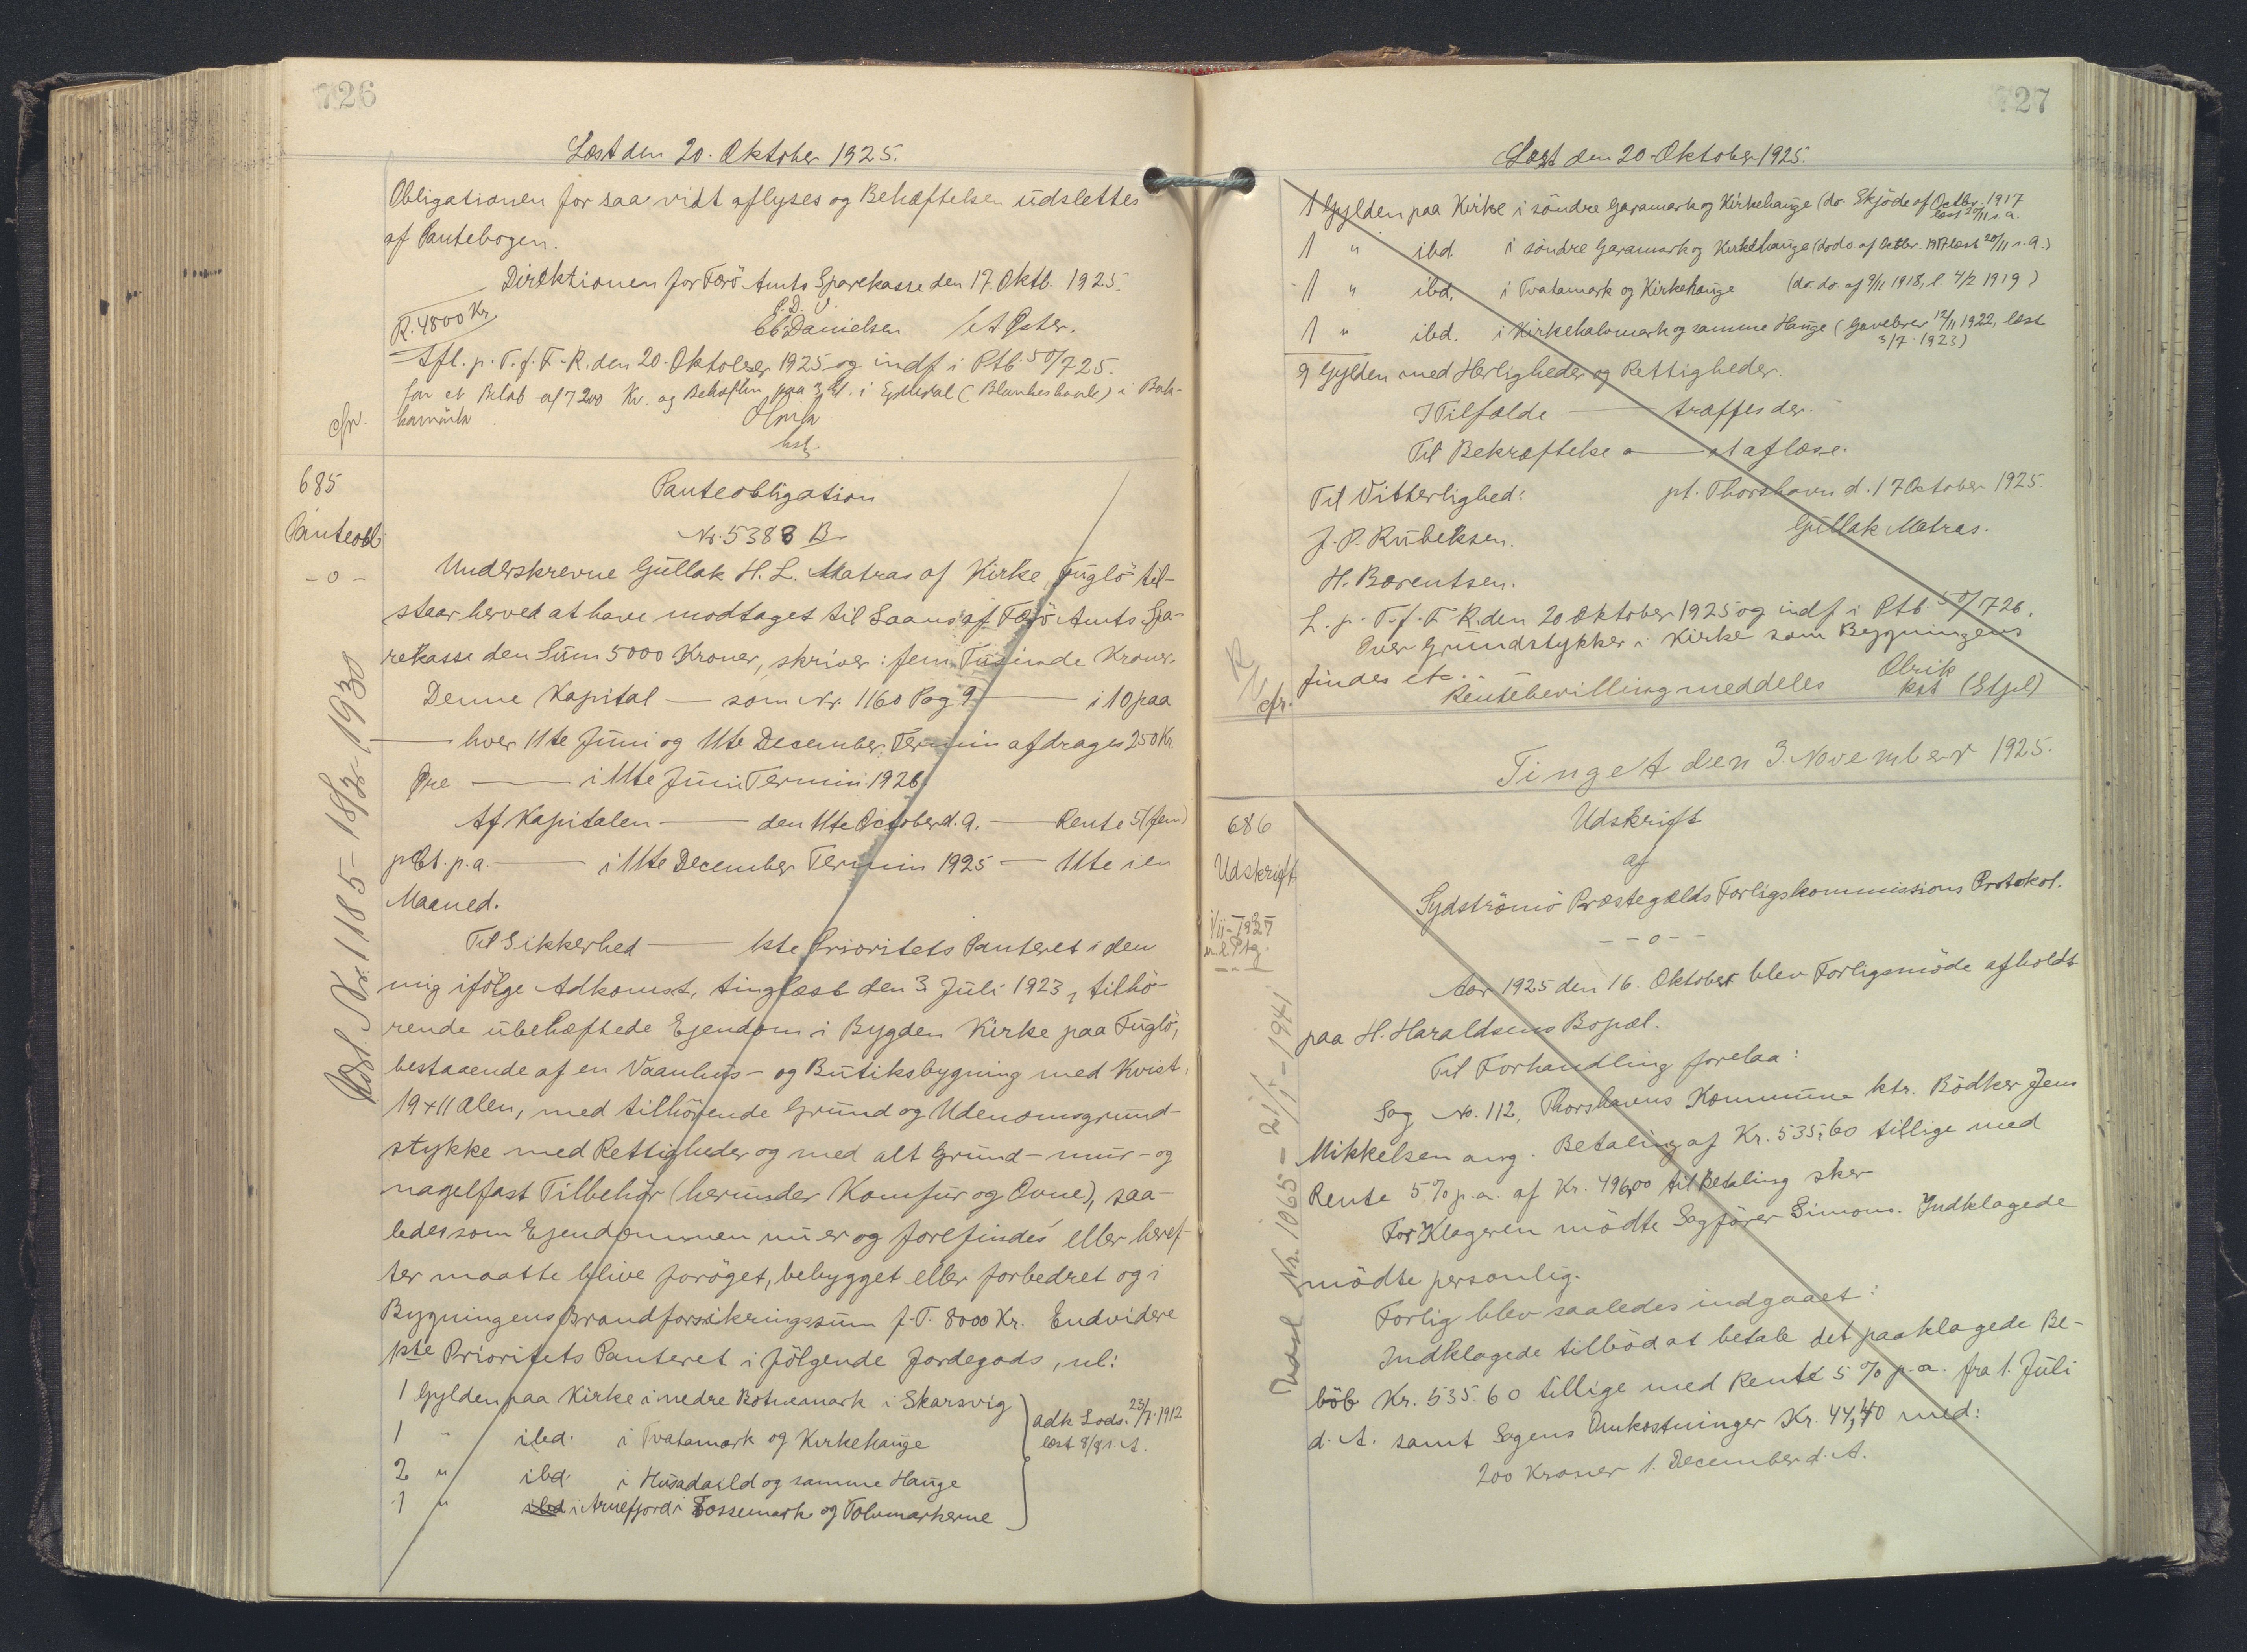 726
Læst den 20. Oktober 1925.
Obligationen for saa vidt aflyses og Behæftelsen udslettes
af Pantebogen.
Direktionen for Færö Amts Sparekasse den 17. Oktb. 1925.
R. 4800 Kr.
Danielsen
Afl. p. T. f. F-R. den 20. Oktober 1925 og indf i Ptb. 50/725.
for et Beløb af 7200 Kr. og
cfr.
685
Panteobl
- o -
Panteobligation
Nr. 5388 B
Underskrevne Gullak H. L. Matras af Kirke, Fuglö til-
staar herved at have modtaget til Laans af Færö Amts Spa-
rekasse den Sum 5000 Kroner, skriver: fem Tusinde Kroner.
Denne Kapital — som Nr. 1160 Pag 9 — i 10 paa
— hver 11te Juni og 11te December Termin afdrages 250 Kr.
Øre — i 11te Juni Termin 1926.
Af Kapitalen — den 11te October d. A. — Rente 5 (fem)
pCt. p.a. — i 11te December Termin 1925 — 11te i en
Maaned.
Til Sikkerhed — 1ste Prioritets Panteret i den
mig ifölge Adkomst, tinglæst den 3 Juli 1923, tilhö-
rende übehæftede Ejendom i Bygden Kirke paa Fuglö,
bestaaende af en Vaanhus- og Butiksbygning med Kvist,
19 x 11 Alen, med tilhörende Grund og Udenomsgrund-
stykke med Rettigheder og med alt Grund- mur- og
nagelfast Tilbehör (herunder Komfur og Ovne), saa-
ledes som Ejendommen nu er og forefindes eller heref-
ter maatte blive foröget, bebygget eller forbedret og i
Bygningens Brandforsikringssum f. T. 8000 Kr. Endvidere
1ste Prioritets Panteret i fölgende Jordegods, nl:
1 Gylden paa Kirke i nedre Botnemark i Skarsvig
1 " ibd. i Tvatamark og Kirkehauge
adk Lods. 23/7. 1912
læst 8/8 s. A.
2 " ibd. i Husadaild og samme Hauge
1 " ibd i Arnefjord i Fossemark og Tolvmarkerne
Udsl. Nr. 1185 - 18/2 - 1930
727
Læst den 20. Oktober 1925.
1 Gylden paa Kirke i söndre Garamark og Kirkehauge (do. Skjöde af Octbr. 1917
læst 20/11 s. a.
1 " ibd. i söndre Garamark og Kirkehauge (do do. af Octbr. 1917 læst 20/11 s. a.)
1 " ibd. i Tvatamark og Kirkehauge (do. do. af 9/11 1918, l. 4/2 1919)
1 " ibd. i Kirkehalvmark og samme Hauge (Gavebrev 12/11 1922, læst
3/7. 1923)
9 Gylden med Herligheder og Rettigheder.
I Tilfælde — træffes der.
Til Bekræftelse a — at aflæse.
Til Vitterlighed:
pt. Thorshavn d. 17 October 1925.
J. P. Rubeksen.
Gullak Matras.
H. Barentsen.
L. p. T. f. F-R. den 20 Oktober 1925 og indf i Ptb. 50/726.
Over Grundstykker i Kirke som Bygningens
findes etc.
Rentebevilling meddeles
cfr.
Tinget den 3. November 1925.
686
Udskrift
Udskrift
af
Sydströmö Præstegælds Forligskommissions Protokol.
- - o - -
Aar 1925 den 16. Oktober blev Forligsmöde afholdt
paa H. Haraldsens Bopæl.
Til Forhandling forelaa:
Sag No. 112, Thorshavns Kommune ktr. Bödker Jens
Mikkelsen ang. Betaling af Kr. 535,60 tillige med
Rente 5% p.a. af Kr. 496,00 til Betaling sker
For Klageren mödte Sagförer Simons. Indklagede
mödte personlig.
Forlig blev saaledes indgaaet:
Indklagede tilböd at betale det paaklagede Be-
böb Kr. 535.60 tillige med Rente 5% p.a. fra 1. Juli
d. A. samt Sagens Omkostninger Kr. 44,40 med:
200 Kroner 1. December d. A.
Udsl Nr. 1065 - 21/1 - 1941